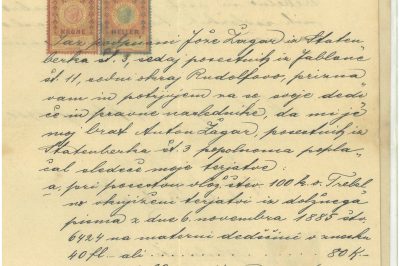 KRONE HELLER
Jaz podpisani Jože Žagar iz Staten-
berka št. 3, sedaj posestnik iz Jablane
št. 11, sodni okraj Rudolfovo, prizna-
vam in potrjujem za se svoje dedi-
če in pravne naslednike, da mi je
moj brat Anton Žagar, posestnik iz
Statenberka št. 3 popolnoma popla-
čal sledeče moje terjatve:
a, pri posestvu vlož. štev. 100 k. o. Trebel-
no vknjiženi terjatvi iz dolžnega
pisma z dne 6. novembra 1885 štv.
6424 na materni dediščini v znesku
40 fl. ali . . . . . . . . . . . 80 K-